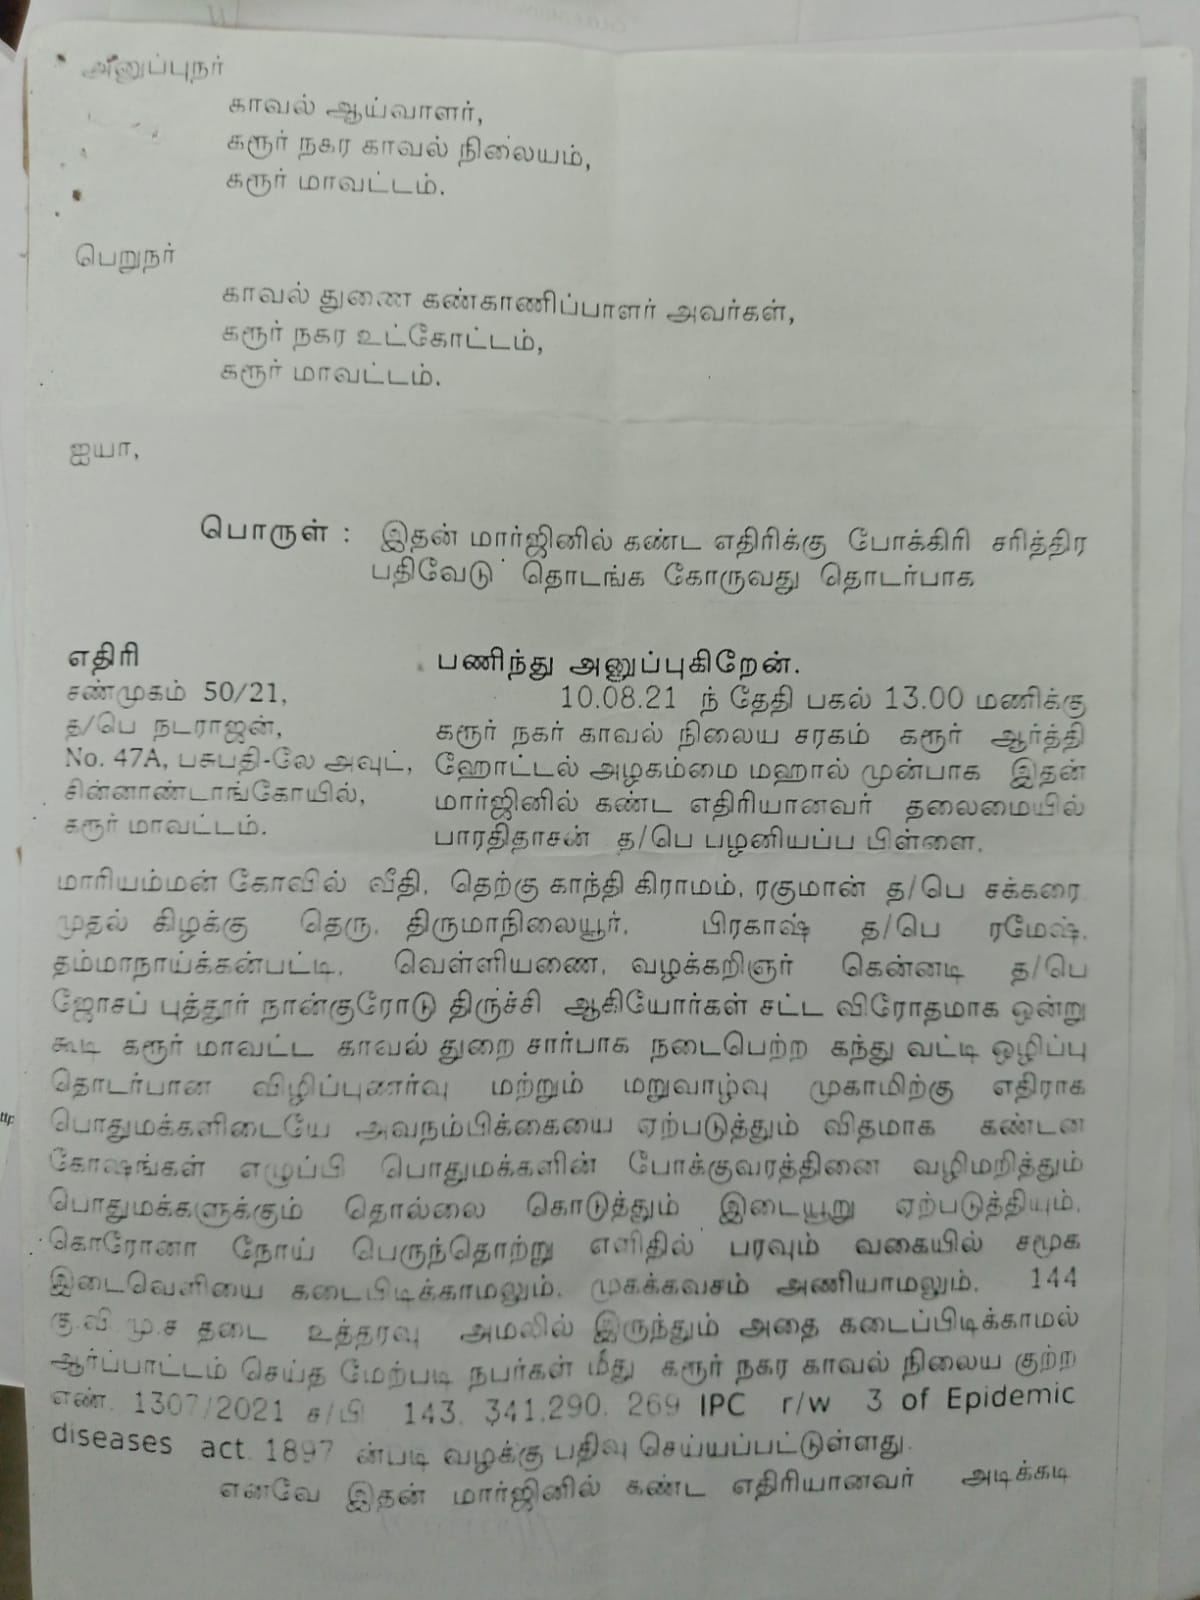 அனுப்புநர்
காவல் ஆய்வாளர்,
கரூர் நகர காவல் நிலையம்,
கரூர் மாவட்டம்.
பெறுநர்
காவல் துணை கண்காணிப்பாளர் அவர்கள்,
கரூர் நகர உட்கோட்டம்,
கரூர் மாவட்டம்.
ஐயா,
பொருள் : இதன் மார்ஜினில் கண்ட எதிரிக்கு போக்கிரி சரித்திர
பதிவேடு தொடங்க கோருவது தொடர்பாக
எதிரி
சண்முகம் 50/21,
த/பெ நடராஜன்,
No. 47A, பசுபதி-லே அவுட்,
சின்னாண்டாங்கோயில்,
கரூர் மாவட்டம்.
பணிந்து அனுப்புகிறேன்.
10.08.21 ந் தேதி பகல் 13.00 மணிக்கு
கரூர் நகர் காவல் நிலைய சரகம் கரூர் ஆர்த்தி
ஹோட்டல் அழகம்மை மஹால் முன்பாக இதன்
மார்ஜினில் கண்ட எதிரியானவர் தலைமையில்
பாரதிதாசன் த/பெ பழனியப்ப பிள்ளை,
மாரியம்மன் கோவில் வீதி, தெற்கு காந்தி கிராமம், ரகுமான் த/பெ சக்கரை
முதல் கிழக்கு தெரு, திருமாநிலையூர், பிரகாஷ் த/பெ ரமேஷ்,
தம்மாநாய்க்கன்பட்டி, வெள்ளியணை, வழக்கறிஞர் கென்னடி த/பெ
ஜோசப் புத்தூர் நான்குரோடு திருச்சி ஆகியோர்கள் சட்ட விரோதமாக ஒன்று
கூடி கரூர் மாவட்ட காவல் துறை சார்பாக நடைபெற்ற கந்து வட்டி ஒழிப்பு
தொடர்பான விழிப்புணர்வு மற்றும் மறுவாழ்வு முகாமிற்கு எதிராக
பொதுமக்களிடையே அவநம்பிக்கையை ஏற்படுத்தும் விதமாக கண்டன
கோஷங்கள் எழுப்பி பொதுமக்களின் போக்குவரத்தினை வழிமறித்தும்
பொதுமக்களுக்கும் தொல்லை கொடுத்தும் இடையூறு ஏற்படுத்தியும்,
கொரோனா நோய் பெருந்தொற்று எளிதில் பரவும் வகையில் சமூக
இடைவெளியை கடைபிடிக்காமலும், முகக்கவசம் அணியாமலும், 144
கு.வி.மு.ச தடை உத்தரவு அமலில் இருந்தும் அதை கடைப்பிடிக்காமல்
ஆர்ப்பாட்டம் செய்த மேற்படி நபர்கள் மீது கரூர் நகர காவல் நிலைய குற்ற
எண். 1307/2021 ச/பி 143, 341,290, 269 IPC r/w 3 of Epidemic
diseases act, 1897 ன்படி வழக்கு பதிவு செய்யப்பட்டுள்ளது.
எனவே இதன் மார்ஜினில் கண்ட எதிரியானவர் அடிக்கடி